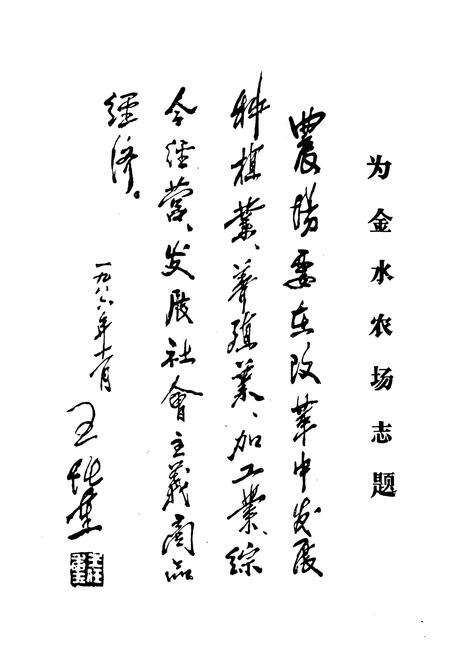 为金水农场志题
農場要在改革中发展
种植業、養殖業、加工業、綜
合經營、发展社會主義商品
經济。
一九八六年十一月
王任重